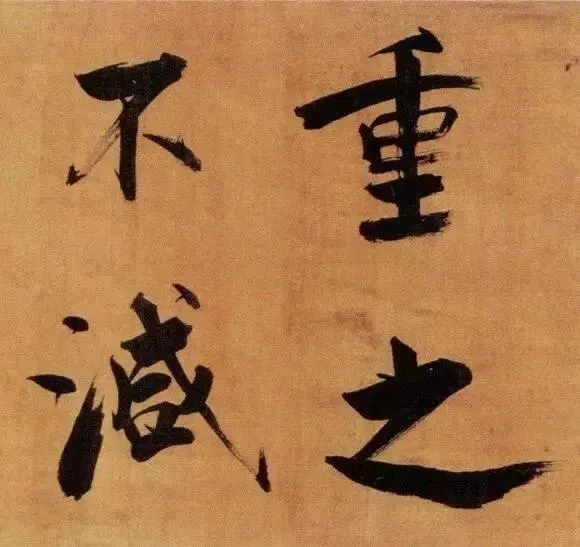 重之
不減